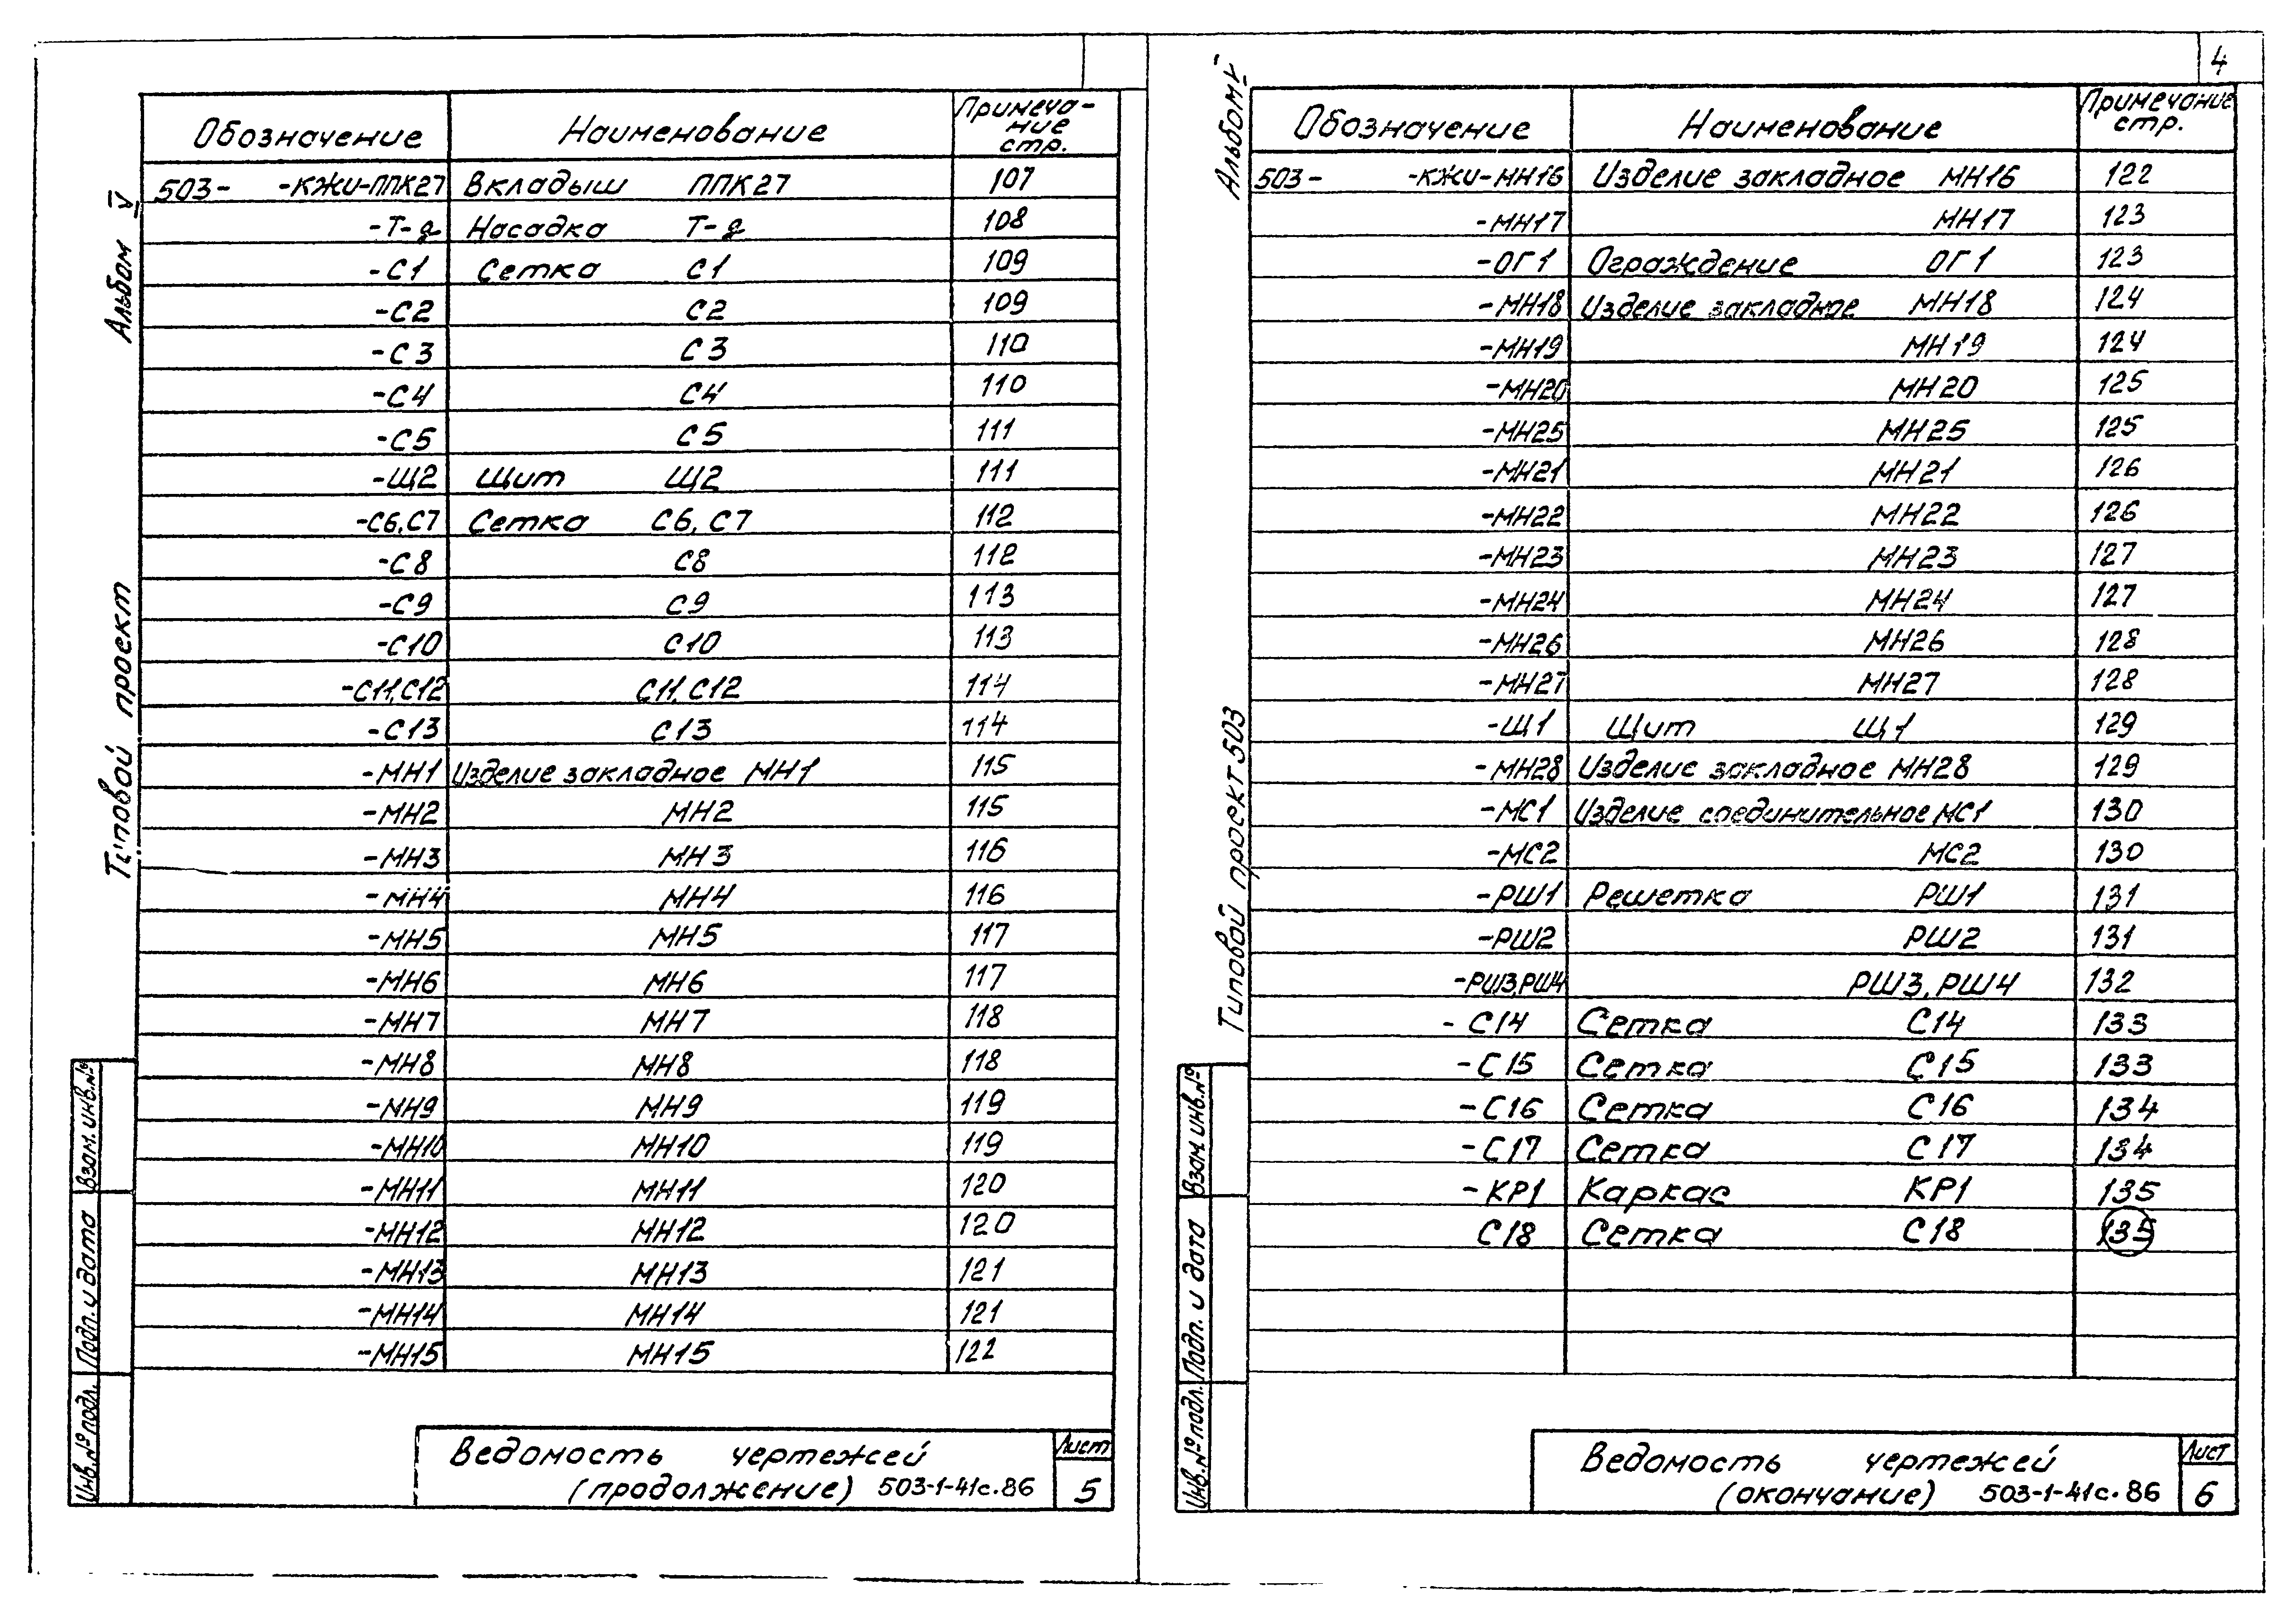 4
Альбом V
Типовой проект
Обозначение Наименование Примеча-
ние
стр.
503- -КЖИ-ППК27 Вкладыш ППК27 107
-Т-д Насадка Т-д 108
-С1 Сетка С1 109
-С2 С2 109
-С3 С3 110
-С4 С4 110
-С5 С5 111
-Щ2 Щит Щ2 111
-С6,С7 Сетка С6,С7 112
-С8 С8 112
-С9 С9 113
-С10 С10 113
-С11,С12 С11,С12 114
-С13 С13 114
-МН1 Изделие закладное МН1 115
-МН2 МН2 115
-МН3 МН3 116
-МН4 МН4 116
-МН5 МН5 117
-МН6 МН6 117
-МН7 МН7 118
-МН8 МН8 118
-МН9 МН9 119
-МН10 МН10 119
-МН11 МН11 120
-МН12 МН12 120
-МН13 МН13 121
-МН14 МН14 121
-МН15 МН15 122
Взам.инв.№
Подп. и дата
Инв.№подл.
Ведомость чертежей
(продолжение) 503-1-41с.86
Лист
5
Альбом V
Типовой проект 503
Обозначение Наименование Примечание
стр.
503- -КЖИ-МН16 Изделие закладное МН16 122
-МН17 МН17 123
-ОГ1 Ограждение ОГ1 123
-МН18 Изделие закладное МН18 124
-МН19 МН19 124
-МН20 МН20 125
-МН25 МН25 125
-МН21 МН21 126
-МН22 МН22 126
-МН23 МН23 127
-МН24 МН24 127
-МН26 МН26 128
-МН27 МН27 128
-Щ1 Щит Щ1 129
-МН28 Изделие закладное МН28 129
-МС1 Изделие соединительное МС1 130
-МС2 МС2 130
-РШ1 Решетка РШ1 131
-РШ2 РШ2 131
-РШ3,РШ4 РШ3,РШ4 132
- С14 Сетка С14 133
-С15 Сетка С15 133
-С16 Сетка С16 134
-С17 Сетка С17 134
-КР1 Каркас КР1 135
С18 Сетка С18 135
Взам.инв.№
Подп. и дата
Инв.№подл.
Ведомость чертежей
(окончание) 503-1-41с.86
Лист
6